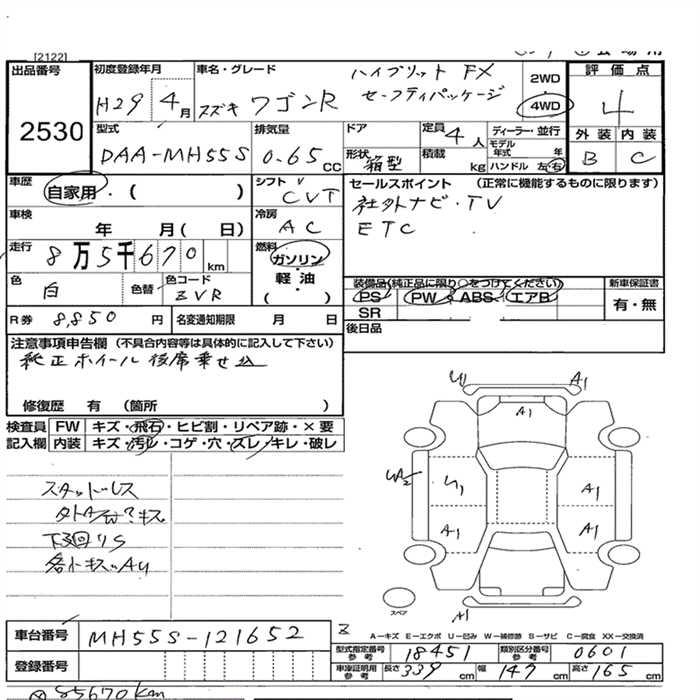 [2122]
出品番号
2530
初度登録年月
H29 4月
車名・グレード
スズキ ワゴンR
ハイブリット FX
セーフティパッケージ
2WD
4WD
評価点
4
外装 内装
B C
型式
DAA-MH55S
排気量
0.65 CC
ドア
形状 箱型
定員 4人
積載 kg
ディーラー・並行
モデル年式 年
ハンドル 左・右
車歴
自家用・( )
シフト
CVT
セールスポイント (正常に機能するものに限ります)
社外ナビ・TV
ETC
車検 年 月( 日)
冷房
AC
走行
8万5千670km
燃料
ガソリン・
軽・油
( )
色
白
色替
色コード
ZVR
装備品(純正品に限り○をつけてください)
PS・PW・ABS・エアB
SR
新車保証書
有・無
R券 8,850円
名変通知期限 月 日
後日品
注意事項申告欄 (不具合内容等は具体的に記入して下さい)
純正ホイール後席乗せ込
修復歴 有 (箇所 )
検査員記入欄
FW キズ・飛石・ヒビ割・リペア跡・×要
内装 キズ・汚レ・コゲ・穴・スレ・キレ・破レ
スタッドレス
下廻りS
U1 A1
A1
UA2
U1
A1
A1
A1
A1
スペア
車台番号
MH55S-121652
登録番号
A−キズ E−エクボ U−凹み W−補修跡 S−サビ C−腐食 XX−交換済
型式指定番号 参考 18451
類別区分番号 参考 0601
車庫証明用 参考 長さ 339cm 幅 147cm 高さ 165cm
85670km